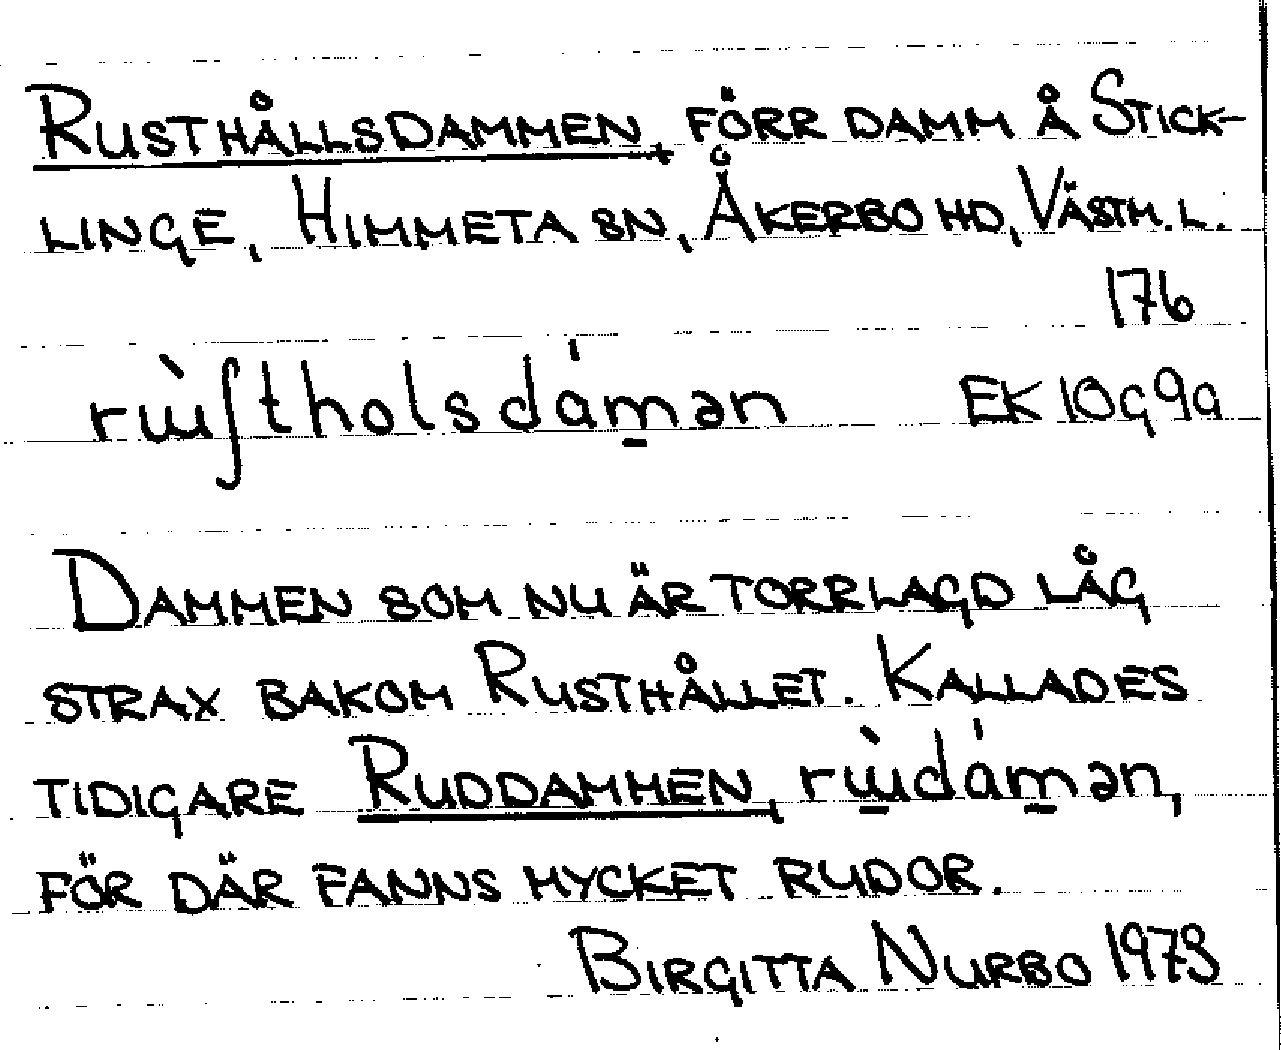 RUSTHÅLLSDAMMEN, FÖRR DAMM Å STICK-
LINGE, HIMMETA SN, ÅKERBO HD, VÄSTM. L.
176
rɯ̀ſtholsdám̱ən EK 10G9a
DAMMEN SOM NU ÄR TORRLAGD LÅG
STRAX BAKOM RUSTHÅLLET. KALLADES
TIDIGARE RUDDAMMEN, rɯ̱̀dám̱ən,
FÖR DÄR FANNS MYCKET RUDOR.
BIRGITTA NURBO